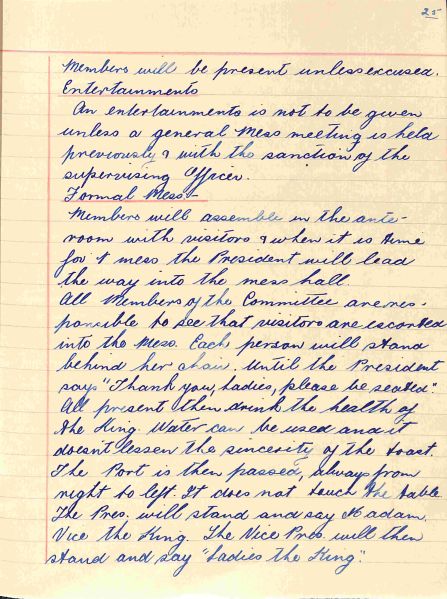 25
Members will be present unless excused.
Entertainments
An entertainments is not to be given
unless a general Mess meeting is held
previously & with the sanction of the
supervising Officer.
Formal Mess
Members will assemble in the ante-
room with visitors & when it is time
for mess the President will lead
the way into the mess hall.
All Members of the Committee are res-
ponsible to see that visitors are escorted
into the Mess. Each person will stand
behind her chair. Until the President
says "Thank you, Ladies, please be seated".
All present then drink the health of
the King. Water can be used and it
doesn't lessen the sincerity of the toast.
The Port is then passed, always from
right to left. It does not touch the table.
The Pres. will stand and say Madam.
Vice the King. The Vice Pres. will then
stand and say "Ladies the King".